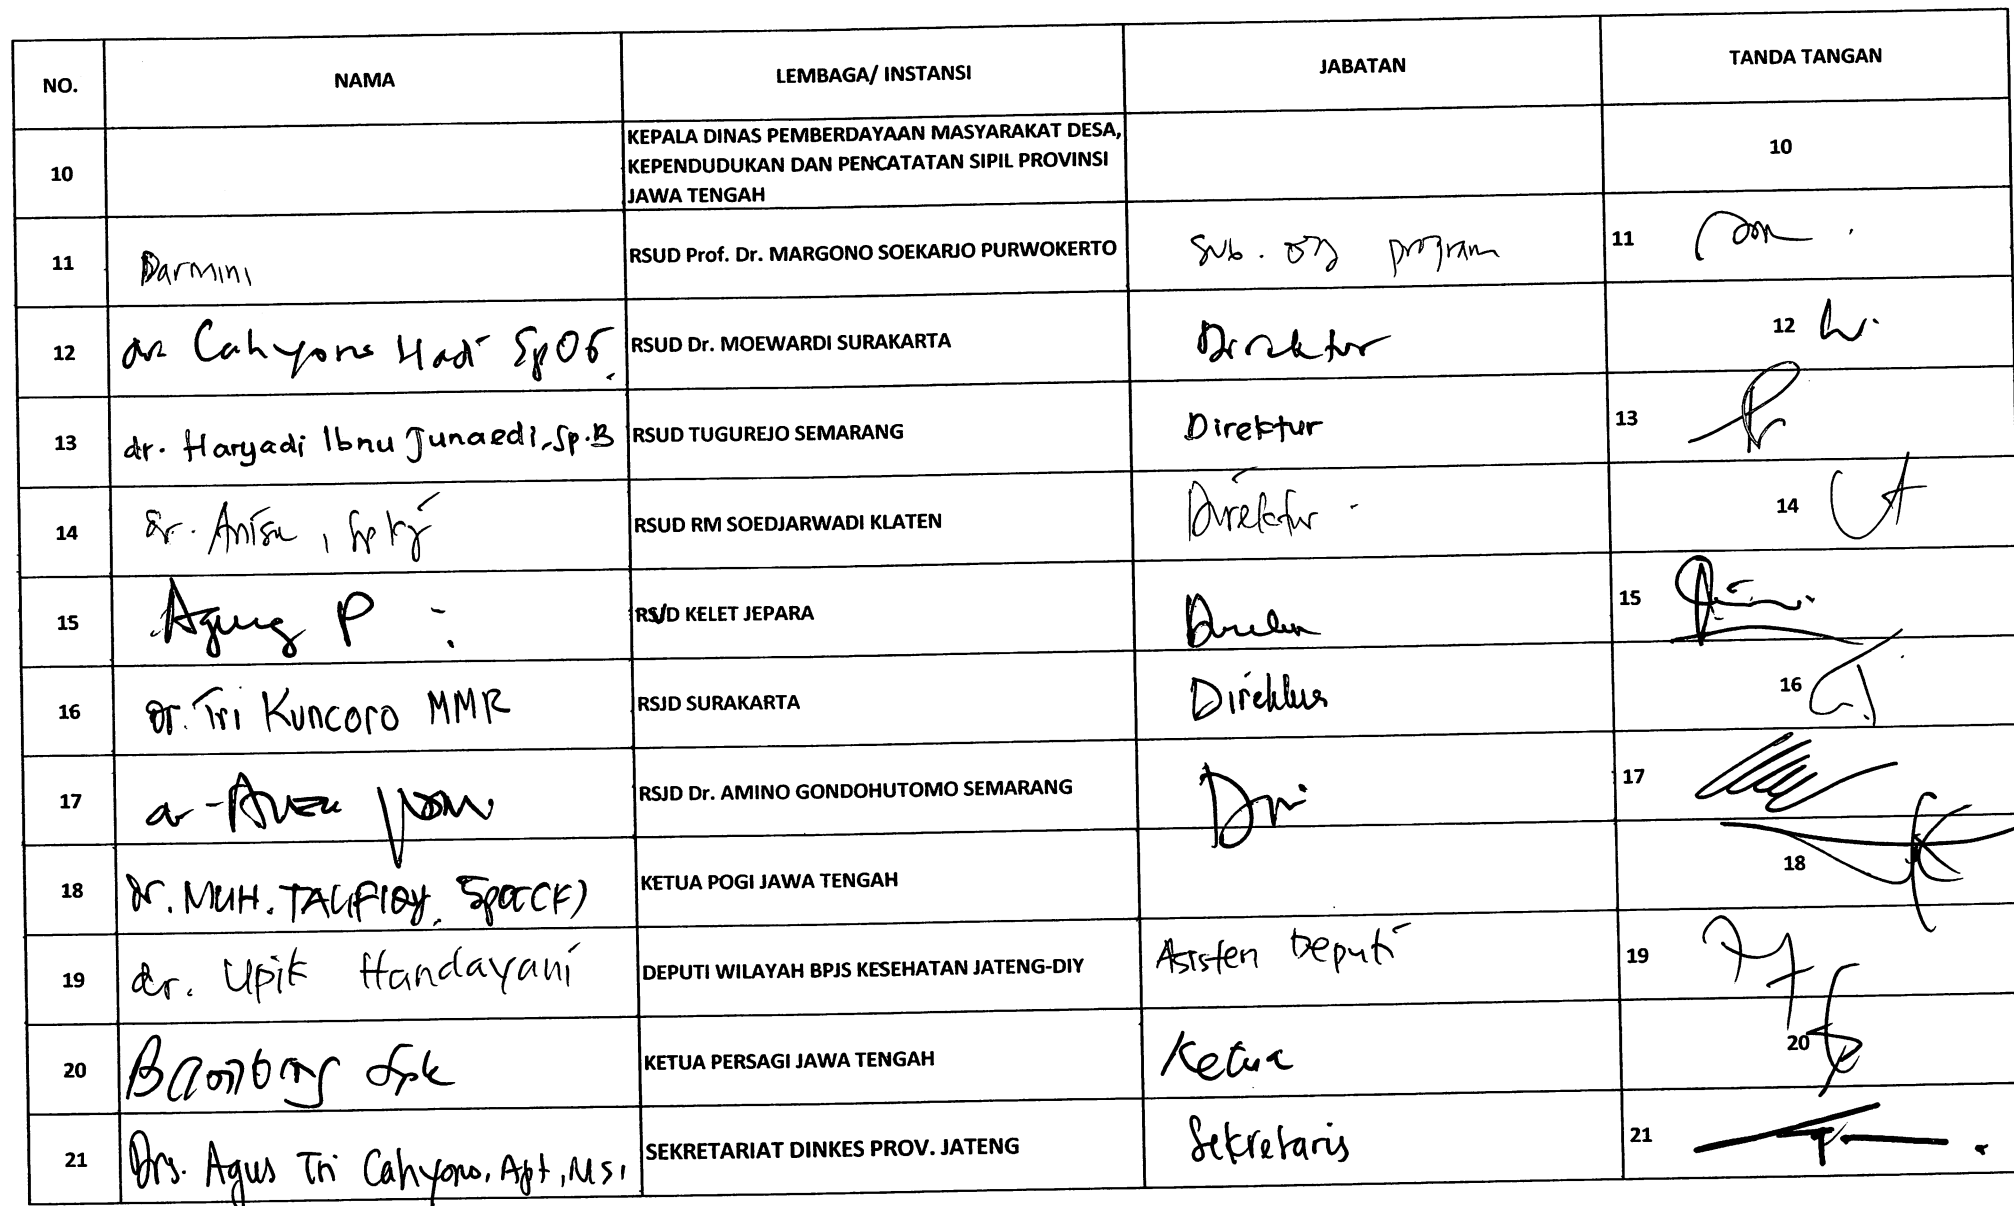 NO. NAMA LEMBAGA/ INSTANSI JABATAN TANDA TANGAN
KEPALA DINAS PEMBERDAYAAN MASYARAKAT DESA,
10 KEPENDUDUKAN DAN PENCATATAN SIPIL PROVINSI 10
JAWA TENGAH
11 Darmini RSUD Prof. Dr. MARGONO SOEKARJO PURWOKERTO Sub. program 11
12 dr. Cahyono Hadi SpOG RSUD Dr. MOEWARDI SURAKARTA Direktur 12
13 dr. Haryadi Ibnu Junaedi, Sp.B RSUD TUGUREJO SEMARANG Direktur 13
14 dr. Anisa, RSUD RM SOEDJARWADI KLATEN Direktur 14
15 Agung P KELET JEPARA 15
16 dr. Tri Kuncoro MMR RSJD SURAKARTA Direktur 16
17 RSJD Dr. AMINO GONDOHUTOMO SEMARANG 17
18 dr. MUH. TAUFIQY. KETUA POGI JAWA TENGAH 18
19 dr. Upik Handayani DEPUTI WILAYAH BPJS KESEHATAN JATENG-DIY Asisten Deputi 19
20 Bambang KETUA PERSAGI JAWA TENGAH Ketua 20
21 Drs. Agus Tri Cahyono, Apt, MSi SEKRETARIAT DINKES PROV. JATENG Sekretaris 21